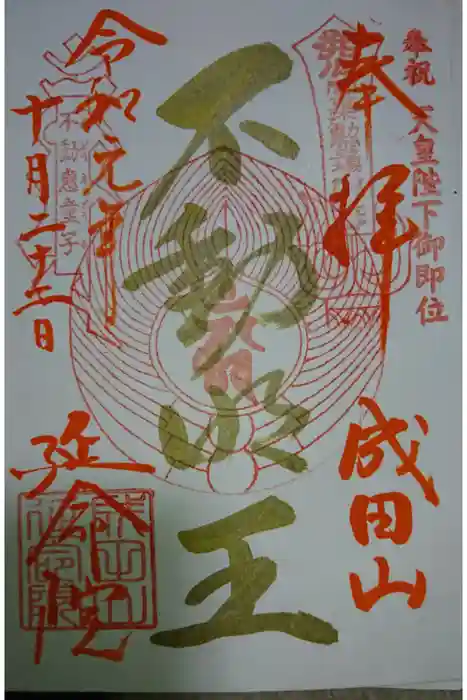 奉祝 天皇陛下御即位
奉拝
成田山
不動明王
不動恵童子
令和元年
十月二十二日
延命院